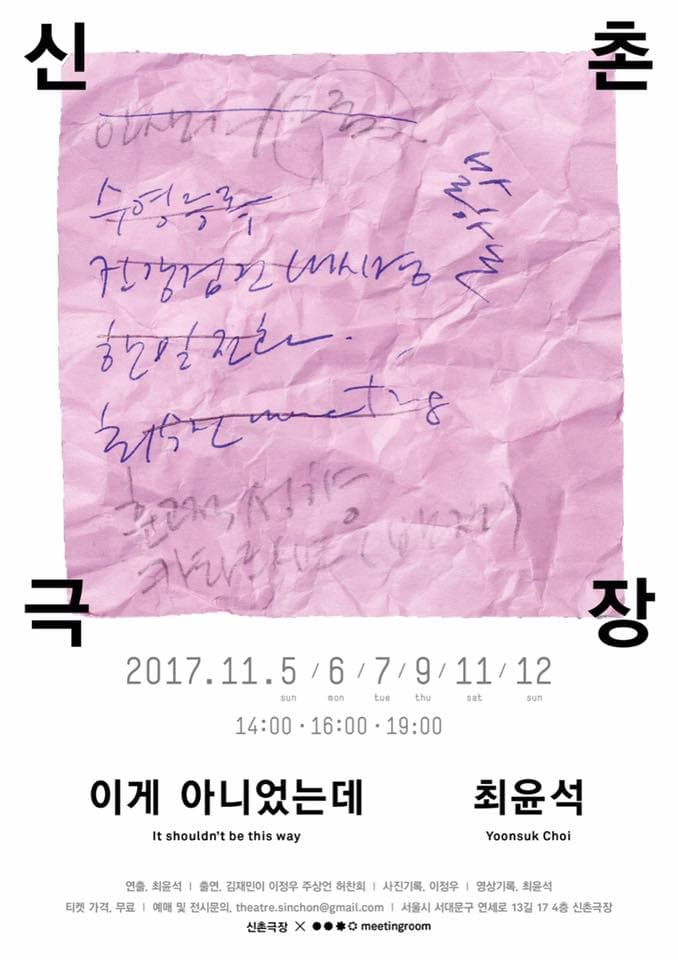 신 촌
수영등록
건강검진 내시경
한일전화.
meeting
2017.11.5 / 6 / 7 / 9 / 11 / 12
sun mon tue thu sat sun
14:00 · 16:00 · 19:00
극 장
이게 아니었는데 최윤석
It shouldn't be this way Yoonsuk Choi
연출. 최윤석 | 출연. 김재민이 이정우 주상언 허찬회 | 사진기록. 이정우 | 영상기록. 최윤석
티켓 가격. 무료 | 예매 및 전시문의. theatre.sinchon@gmail.com | 서울시 서대문구 연세로 13길 17 4층 신촌극장
신촌극장 × meetingroom